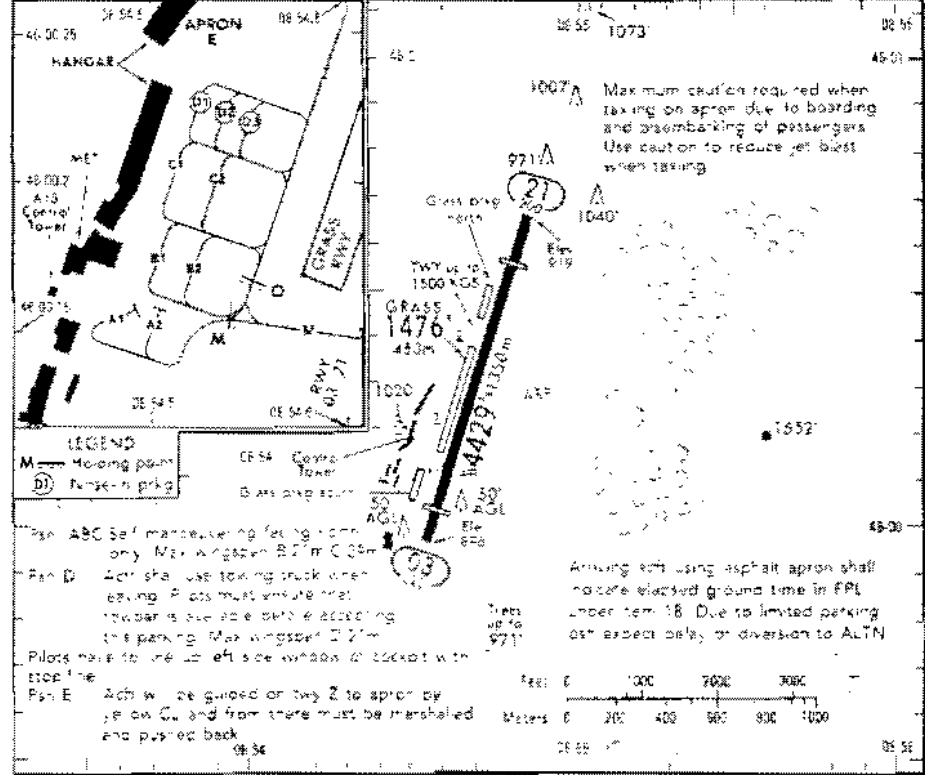 08 54.5
08 54.6
APRON
E
46-00.25
HANGAR
D1
D2
D3
MET
C1
C2
46-00.2
AIS
Control
Tower
B1
B2
GRASS
RWY
D
A1
A2
M
M
RWY
03 21
08 54.5
08 54.6
LEGEND
M Holding point
D1 Nose-in prkg
08 55
1073'
08 56
46-01
1007'
Maximum caution required when
taxiing on apron due to boarding
and disembarking of passengers
Use caution to reduce jet blast
when taxiing
971'
21
1040'
Grass prkg
north
Elev
TWY up to
1500 KGS
GRASS
1476'
450m
4429' 1350m
1020'
ARP
1652'
08 54
Control
Tower
Grass prkg south
50'
AGL
50'
AGL
Elev
03
46-00
Psn ABC Self manoeuvering facing north
only. Max wingspan B 21m C 24m
Psn D Acft shall use towing truck when
leaving. Pilots must ensure that
towbar is available before accepting
this parking. Max wingspan
Pilots have to line up left side window of cockpit with
stop line
Psn E Acft will be guided on twy Z to apron by
yellow CL and from there must be marshalled
and pushed back
Trees
up to
971'
Arriving acft using asphalt apron shall
indicate elapsed ground time in FPL
under item 18. Due to limited parking
acft expect delay or diversion to ALTN
Feet 0 1000 2000 3000
Meters 0 200 400 600 800 1000
08 54
08 55
08 56